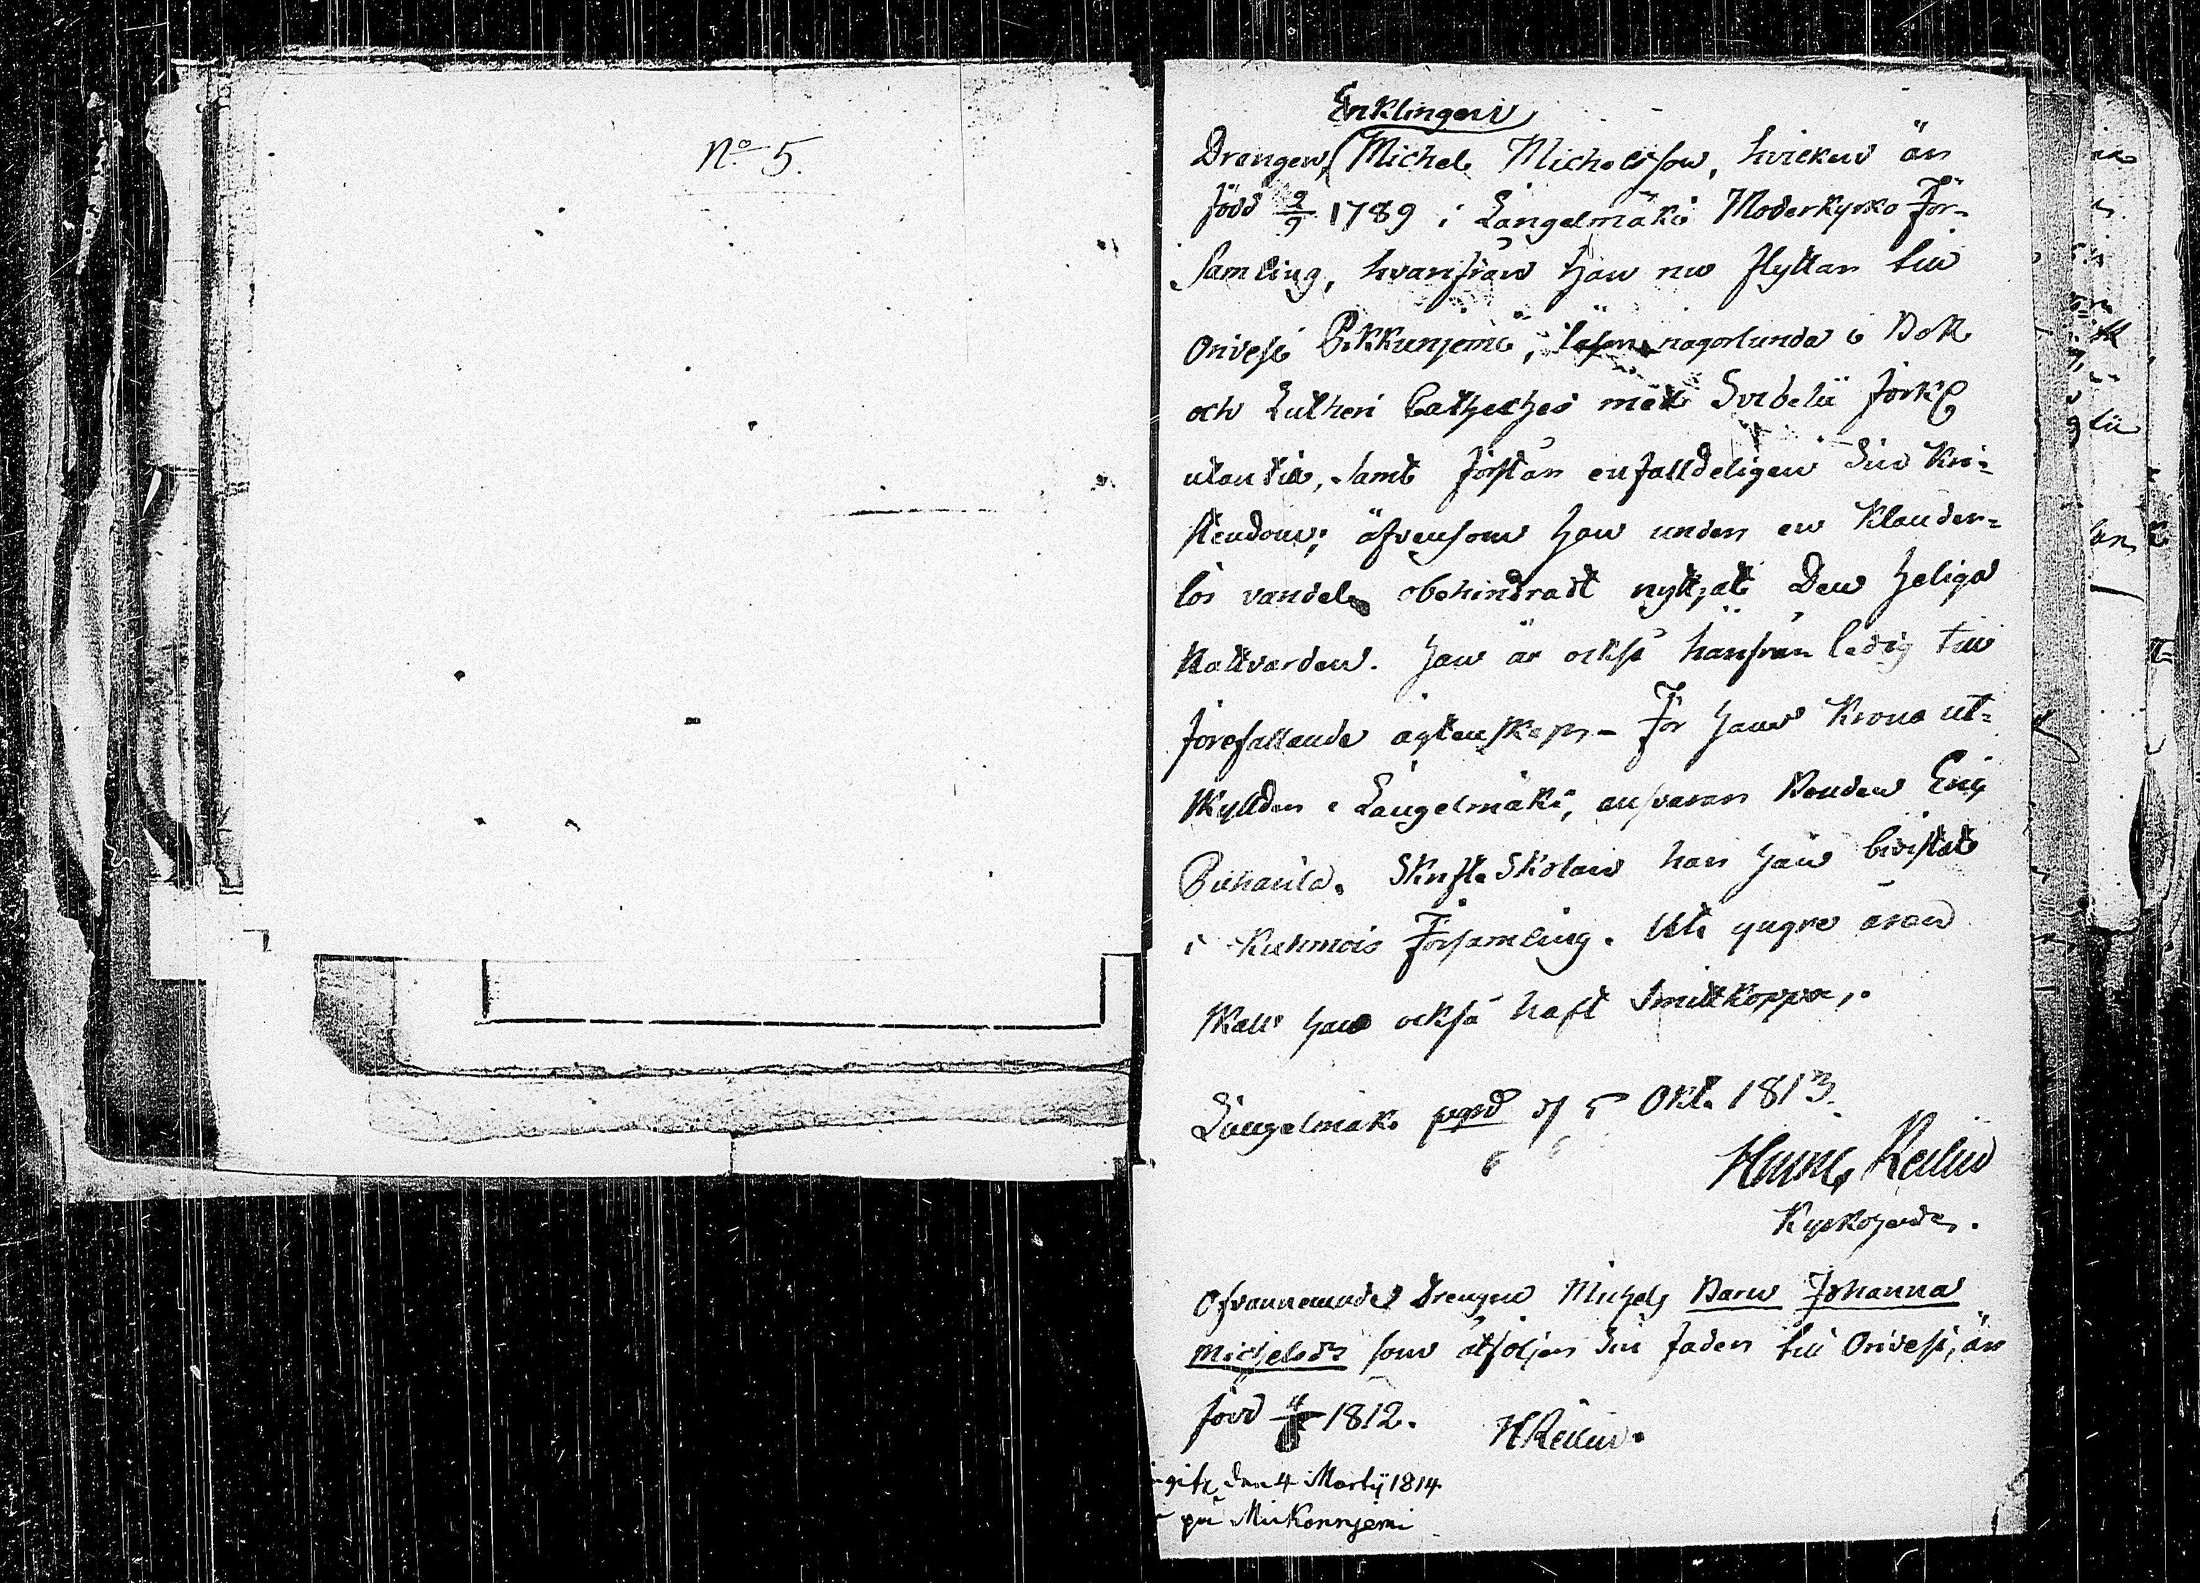 No 5.
Enklingen
Drängen Michel Michelsson, hvicken är
född 2/9 1789 i Längelmäki Moderkyrko För-
samling, hvarifrån han nu flyttar till
Orivesi Pukkunjemi, läser någorlunda i Bok
och Lutheri Catheches med Svebelii förkl
utantill, samt förstår enfalldeligen sin Kri-
stendom; äfvensom han under en klander-
lös vandel obehindradt nyttjat Den heliga
Nattvarden. Han är också härifrån ledig till
förefallande ägtenskap. - För hans Krono ut-
skylder i Längelmäki, ansvarar Bonden Eric
Puharila. Skrifte Skolan har han bivistat
i Kuhmois Församling. Uti yngre åren
skall han också haft Smittkoppor.
Längelmäki pgrd d 5 Okt. 1813.
Kyrkoherde.
Ofvannemnde Drengen Michels Barn Johanna
Michelsdr som åtföljer sin fader till Orivesi, är
född 1812.
den 4 Martij 1814
på Mickonnjemi